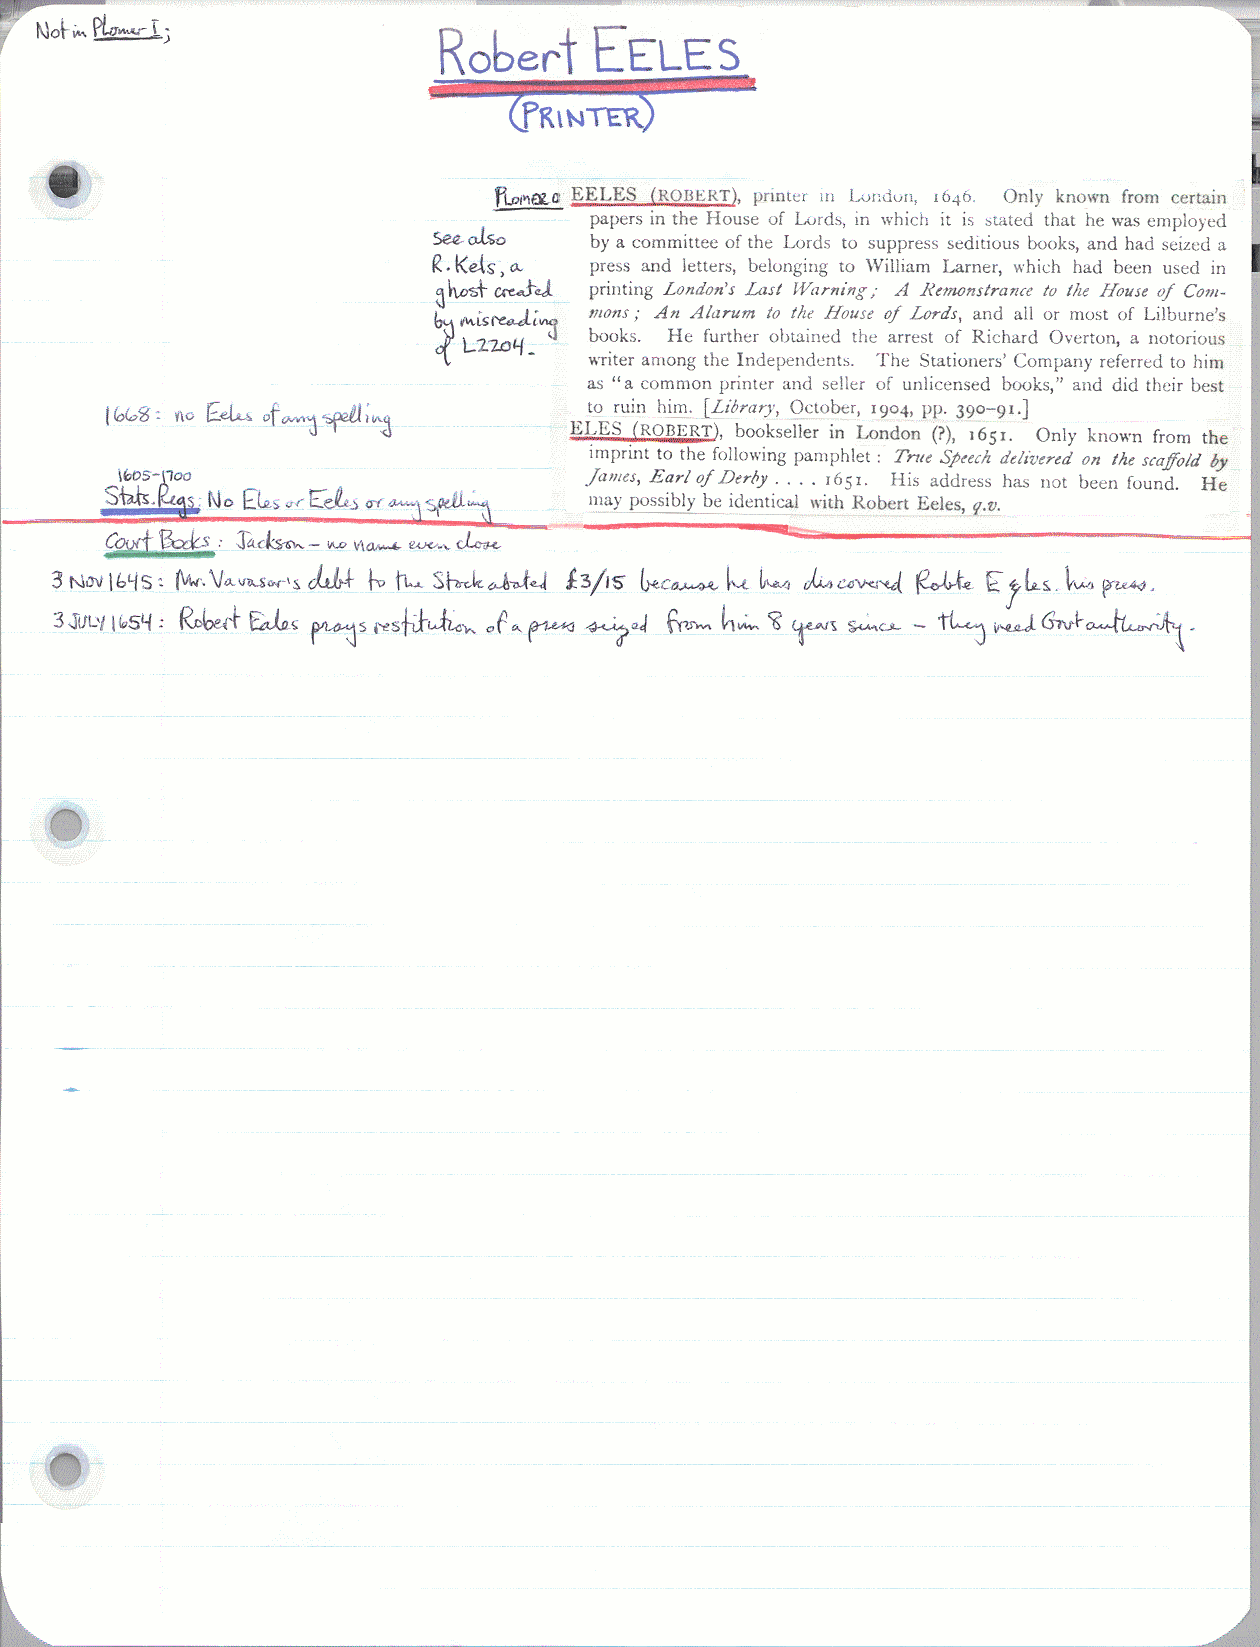 Not in Plomer I;
Robert EELES
(PRINTER)
PLOMER O
EELES (ROBERT), printer in London, 1646. Only known from certain
papers in the House of Lords, in which it is stated that he was employed
by a committee of the Lords to suppress seditious books, and had seized a
press and letters, belonging to William Larner, which had been used in
printing London's Last Warning; A Remonstrance to the House of Com-
mons; An Alarum to the House of Lords, and all or most of Lilburne's
books. He further obtained the arrest of Richard Overton, a notorious
writer among the Independents. The Stationers' Company referred to him
as "a common printer and seller of unlicensed books," and did their best
to ruin him. [Library, October, 1904, pp. 390-91.]
ELES (ROBERT), bookseller in London (?), 1651. Only known from the
imprint to the following pamphlet: True Speech delivered on the scaffold by
James, Earl of Derby .... 1651. His address has not been found. He
may possibly be identical with Robert Eeles, q.v.
see also
R. Kels, a
ghost created
by misreading
of L2204.
1668: no Eeles of any spelling
1605-1700
Stats. Regs: No Eles or Eeles or any spelling
Court Books: Jackson - no name even close
3 NOV 1645: Mr. Vavasor's debt to the Stock abated £3/15 because he has discovered Robte Egles. his press.
3 JULY 1654: Robert Eales prays restitution of a press seized from him 8 years since - they need Govt authority.